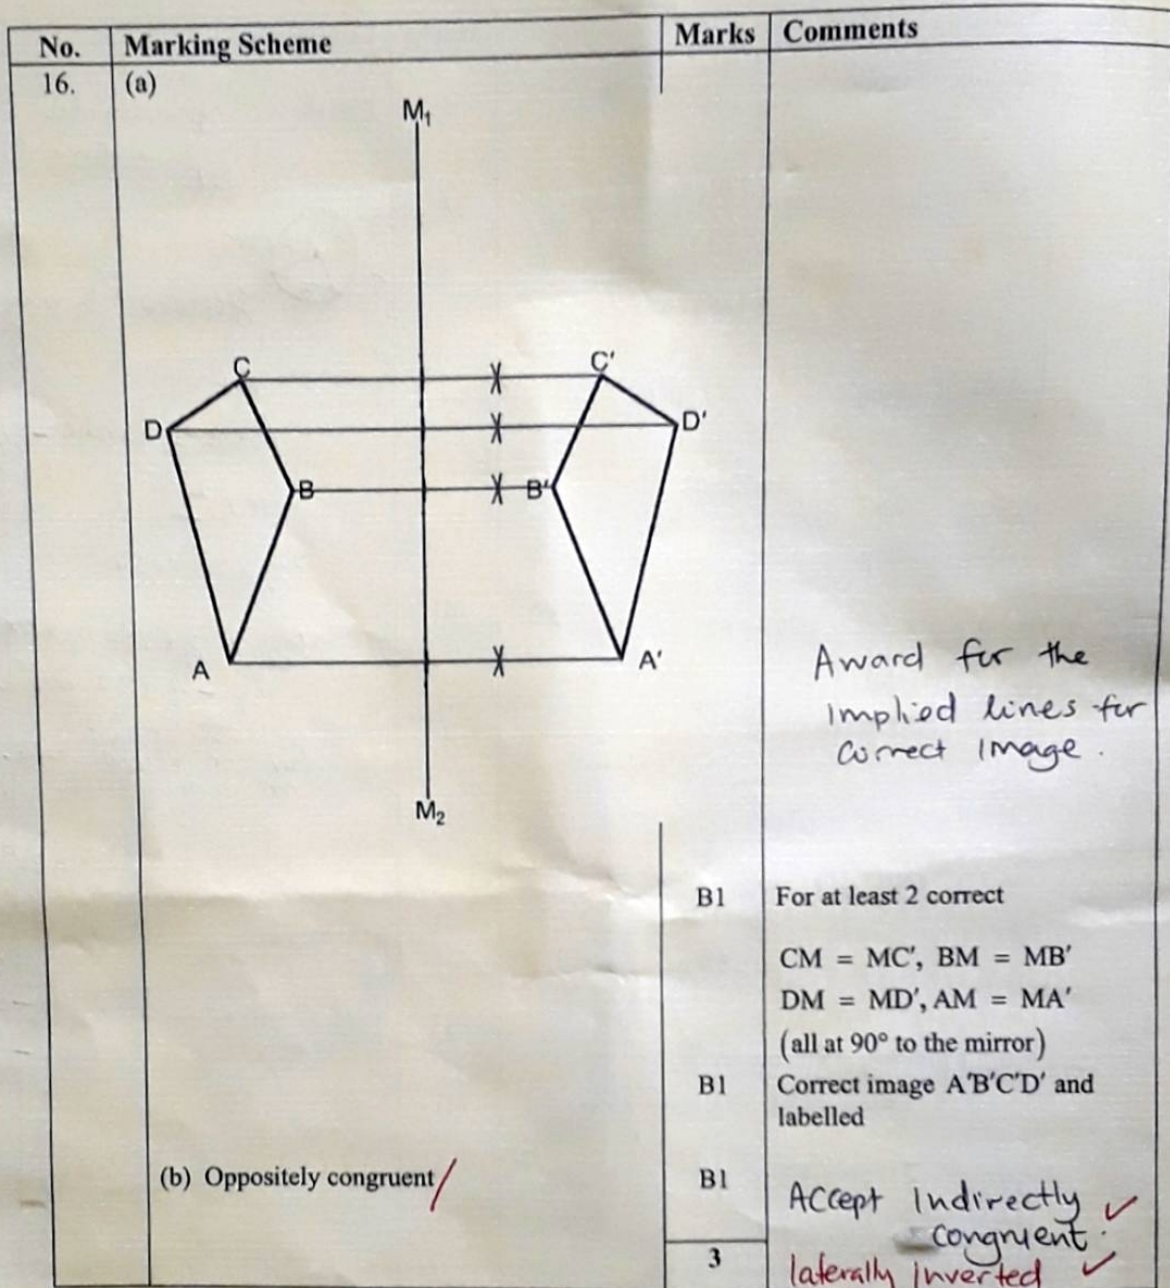 No. Marking Scheme Marks Comments
16. (a)
M₁
C C'
D D'
B B'
A A'
M₂
Award for the
implied lines for
correct image.
B1 For at least 2 correct
CM = MC', BM = MB'
DM = MD', AM = MA'
(all at 90° to the mirror)
B1 Correct image A'B'C'D' and
labelled
(b) Oppositely congruent B1
Accept Indirectly
congruent.
3
laterally inverted